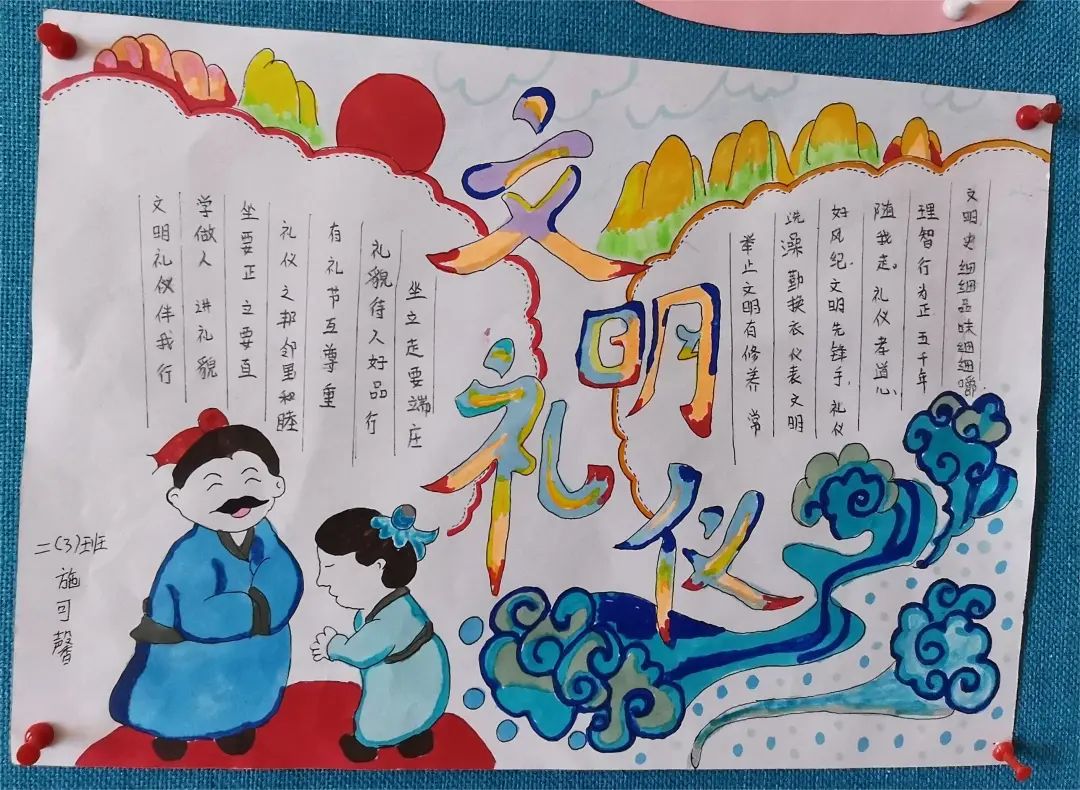 文明礼仪
文明礼仪伴我行
学做人 讲礼貌
坐要正 立要直
礼仪之邦邻里和睦
有礼节互尊重
礼貌待人好品行
坐立走要端庄
举止文明有修养 常
洗澡勤换衣仪表文明
好风纪.文明先锋手.礼仪
随我走。礼仪孝道心
理智行为正五千年
文明史细细品味细细嚼
二(3)班
施可馨